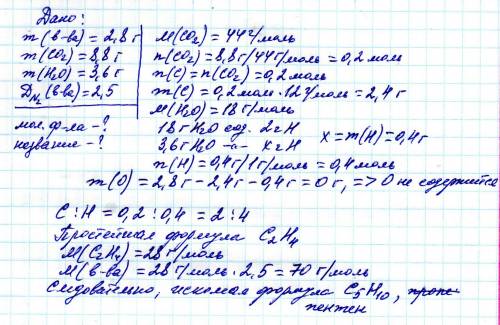 Дано:
m(в-ва)=2,8г
m(CO₂)=8,8г
m(H₂O)=3,6г
D_N₂(в-ва)=2,5
мол. ф-ла-?
название-?
M(CO₂)=44г/моль
n(CO₂)=8,8г/44г/моль=0,2мол
n(C)=n(CO₂)=0,2моль
m(C)=0,2моль·12г/моль=2,4г
M(H₂O)=18г/моль
18гH₂O сод. 2гH
3,6гH₂O -"- xгH x=m(H)=0,4г
n(H)=0,4г/1г/моль=0,4моль
m(O)=2,8г-2,4г-0,4г=0г, => O не содержится
C:H=0,2:0,4=2:4
Простейшая формула C₂H₄
M(C₂H₄)=28г/моль
M(в-ва)=28г/моль·2,5=70г/моль
Следовательно, искомая формула C₅H₁₀,
пентен